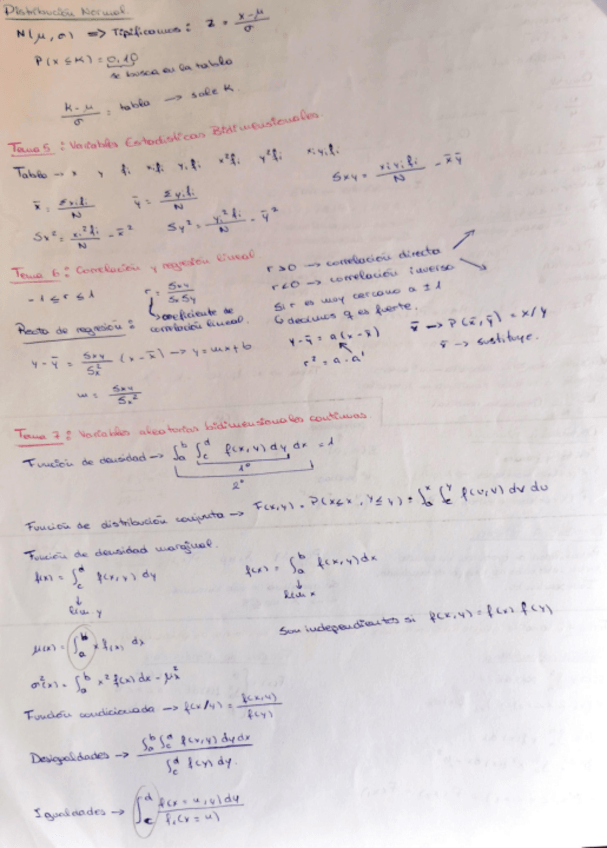 Distribución Normal.
N(μ,σ) => Tipificamos: Z = x-μ/σ
P(x≤K) = 0,10
se busca en la tabla
K-μ/σ = tabla → sale K.
Tema 5: Variables Estadísticas Bidimensionales.
Tabla → x y fi xifi yifi x²fi y²fi xiyifi
x̄ = Σxifi/N ȳ = Σyifi/N Sxy = xiyifi/N - x̄ȳ
Sx² = xi²fi/N - x̄² Sy² = yi²fi/N - ȳ²
Tema 6: Correlación y regresión lineal
-1 ≤ r ≤ 1 r = Sxy/SxSy
coeficiente de correlación lineal.
r>0 → correlación directa
r<0 → correlación inversa
Si r es muy cercano a ±1
decimos q es fuerte.
Recta de regresión:
y-ȳ = Sxy/Sx² (x-x̄) → y = mx+b
m = Sxy/Sx²
y-ȳ = a(x-x̄)
r² = a·a'
→ P(x̄,ȳ) = x/y
→ sustituye.
Tema 7: Variables aleatorias bidimensionales continuas.
Función de densidad → ∫ₐᵇ ∫c^d f(x,y) dy dx = 1
1º
2º
Función de distribución conjunta → F(x,y) = P(X≤x, Y≤y) = ∫ₐˣ ∫c^y f(u,v) dv du
Función de densidad marginal.
f(x) = ∫c^d f(x,y) dy f(x) = ∫ₐᵇ f(x,y) dx
lim y lim x
Son independientes si f(x,y) = f(x).f(y)
μ(x) = ∫ₐᵇ x f(x) dx
σ²(x) = ∫ₐᵇ x² f(x) dx - μx²
Función condicionada → f(x/y) = f(x,y)/f(y)
Desigualdades → ∫ₐᵇ∫c^d f(x,y) dy dx / ∫c^d f(y) dy.
Igualdades → ∫c^d f(x=u,y) dy / f₁(x=u)